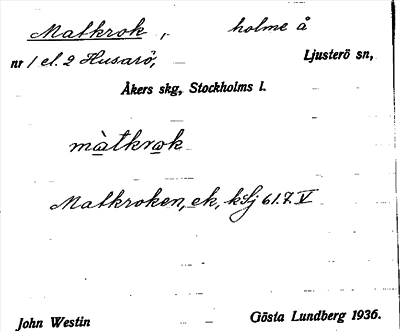 Matkrok, holme å
nr 1 el. 2 Husarö, Ljusterö sn,
Åkers skg, Stockholms l.
màtkrok
Matkroken, ek, kSj 61.7 V
John Westin Gösta Lundberg 1936.